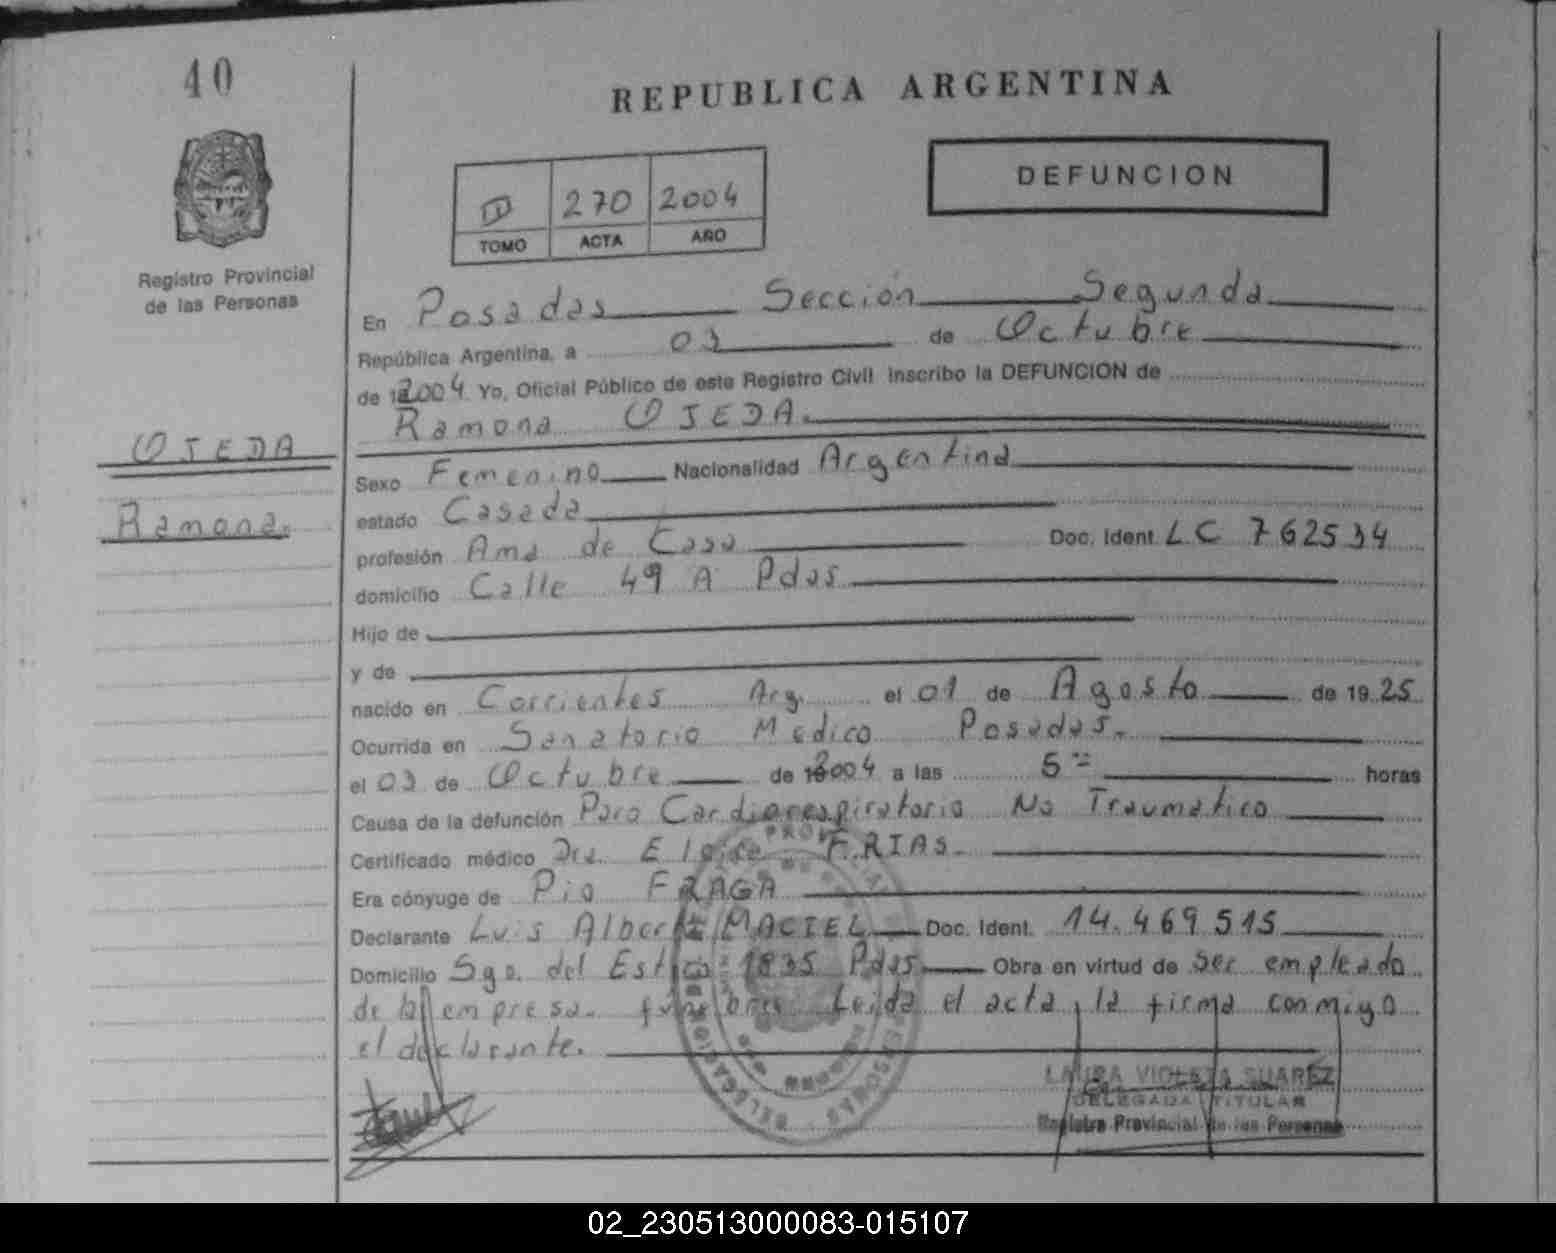 40
REPUBLICA ARGENTINA
270 2004
TOMO ACTA AÑO
DEFUNCION
Registro Provincial
de las Personas
OJEDA
Ramona.
En Posadas Sección Segunda
República Argentina, a 03 de Octubre
de 2004 Yo, Oficial Público de este Registro Civil inscribo la DEFUNCION de
Ramona OJEDA.
Sexo Femenino Nacionalidad Argentina
estado Casada
profesión Ama de Casa Doc. Ident. LC 762534
domicilio Calle 49 A Pdas
Hijo de
y de
nacido en Corrientes Arg. el 01 de Agosto de 19 25
Ocurrida en Sanatorio Medico Posadas.
el 03 de Octubre de 2004 a las 5 horas
Causa de la defunción Paro Cardiorespiratorio No Traumatico
Certificado médico Dra. FRIAS.
Era cónyuge de Pio FRAGA
Declarante Luis Alberto MACIEL Doc. Ident. 14.469515
Domicilio Sgo. del Estero 1835 Pdas Obra en virtud de ser empleado
de la empresa funebre Leida el acta, la firma conmigo
el declarante.
LAURA VIOLETA SUAREZ
DELEGADA TITULAR
Registro Provincial de las Personas
02_230513000083-015107